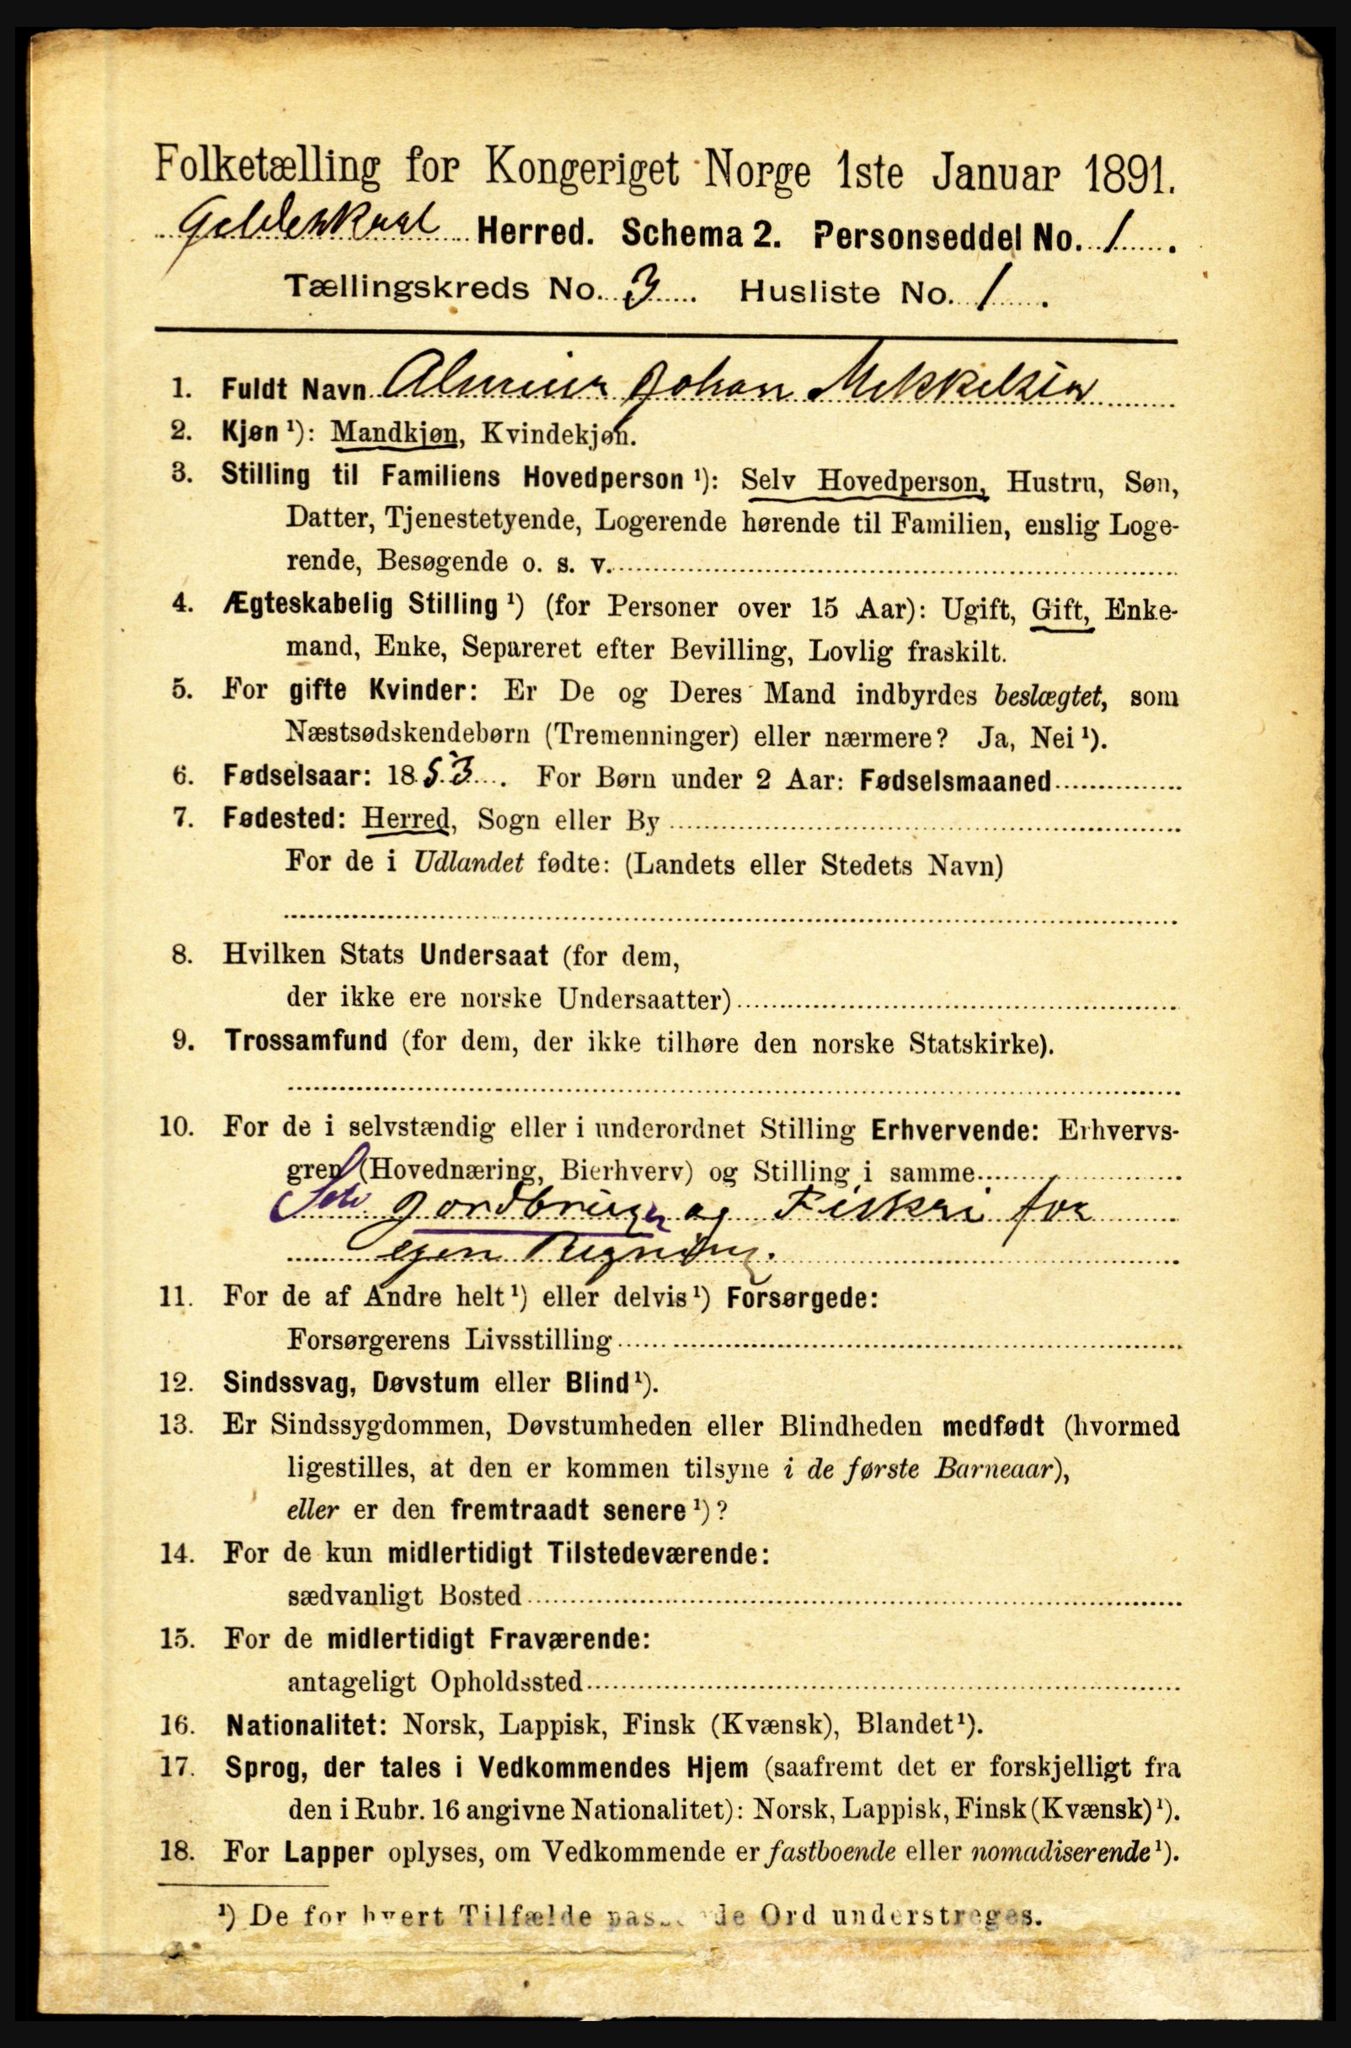 Folketælling for Kongeriget Norge 1ste Januar 1891.
Gildeskaal Herred. Schema 2. Personseddel No. 1.
Tællingskreds No. 3. Husliste No. 1.
1. Fuldt Navn Johan Mekkelsen
2. Kjøn ¹): Mandkjøn, Kvindekjøn.
3. Stilling til Familiens Hovedperson ¹): Selv Hovedperson, Hustru, Søn,
Datter, Tjenestetyende, Logerende hørende til Familien, enslig Loge-
rende, Besøgende o. s. v.
4. Ægteskabelig Stilling ¹) (for Personer over 15 Aar): Ugift, Gift, Enke-
mand, Enke, Separeret efter Bevilling, Lovlig fraskilt.
5. For gifte Kvinder: Er De og Deres Mand indbyrdes beslægtet, som
Næstsødskendebørn (Tremenninger) eller nærmere? Ja, Nei ¹).
6. Fødselsaar: 1853. For Børn under 2 Aar: Fødselsmaaned
7. Fødested: Herred, Sogn eller By
For de i Udlandet fødte: (Landets eller Stedets Navn)
8. Hvilken Stats Undersaat (for dem,
der ikke ere norske Undersaatter)
9. Trossamfund (for dem, der ikke tilhøre den norske Statskirke).
10. For de i selvstændig eller i underordnet Stilling Erhvervende: Erhvervs-
gren (Hovednæring, Bierhverv) og Stilling i samme
Selv Jordbruger og Fiskeri for
egen Regning.
11. For de af Andre helt ¹) eller delvis ¹) Forsørgede:
Forsørgerens Livsstilling
12. Sindssvag, Døvstum eller Blind ¹).
13. Er Sindssygdommen, Døvstumheden eller Blindheden medfødt (hvormed
ligestilles, at den er kommen tilsyne i de første Barneaar),
eller er den fremtraadt senere ¹)?
14. For de kun midlertidigt Tilstedeværende:
sædvanligt Bosted
15. For de midlertidigt Fraværende:
antageligt Opholdssted
16. Nationalitet: Norsk, Lappisk, Finsk (Kvænsk), Blandet ¹).
17. Sprog, der tales i Vedkommendes Hjem (saafremt det er forskjelligt fra
den i Rubr. 16 angivne Nationalitet): Norsk, Lappisk, Finsk (Kvænsk) ¹).
18. For Lapper oplyses, om Vedkommende er fastboende eller nomadiserende ¹).
¹) De for hvert Tilfælde passende Ord understreges.